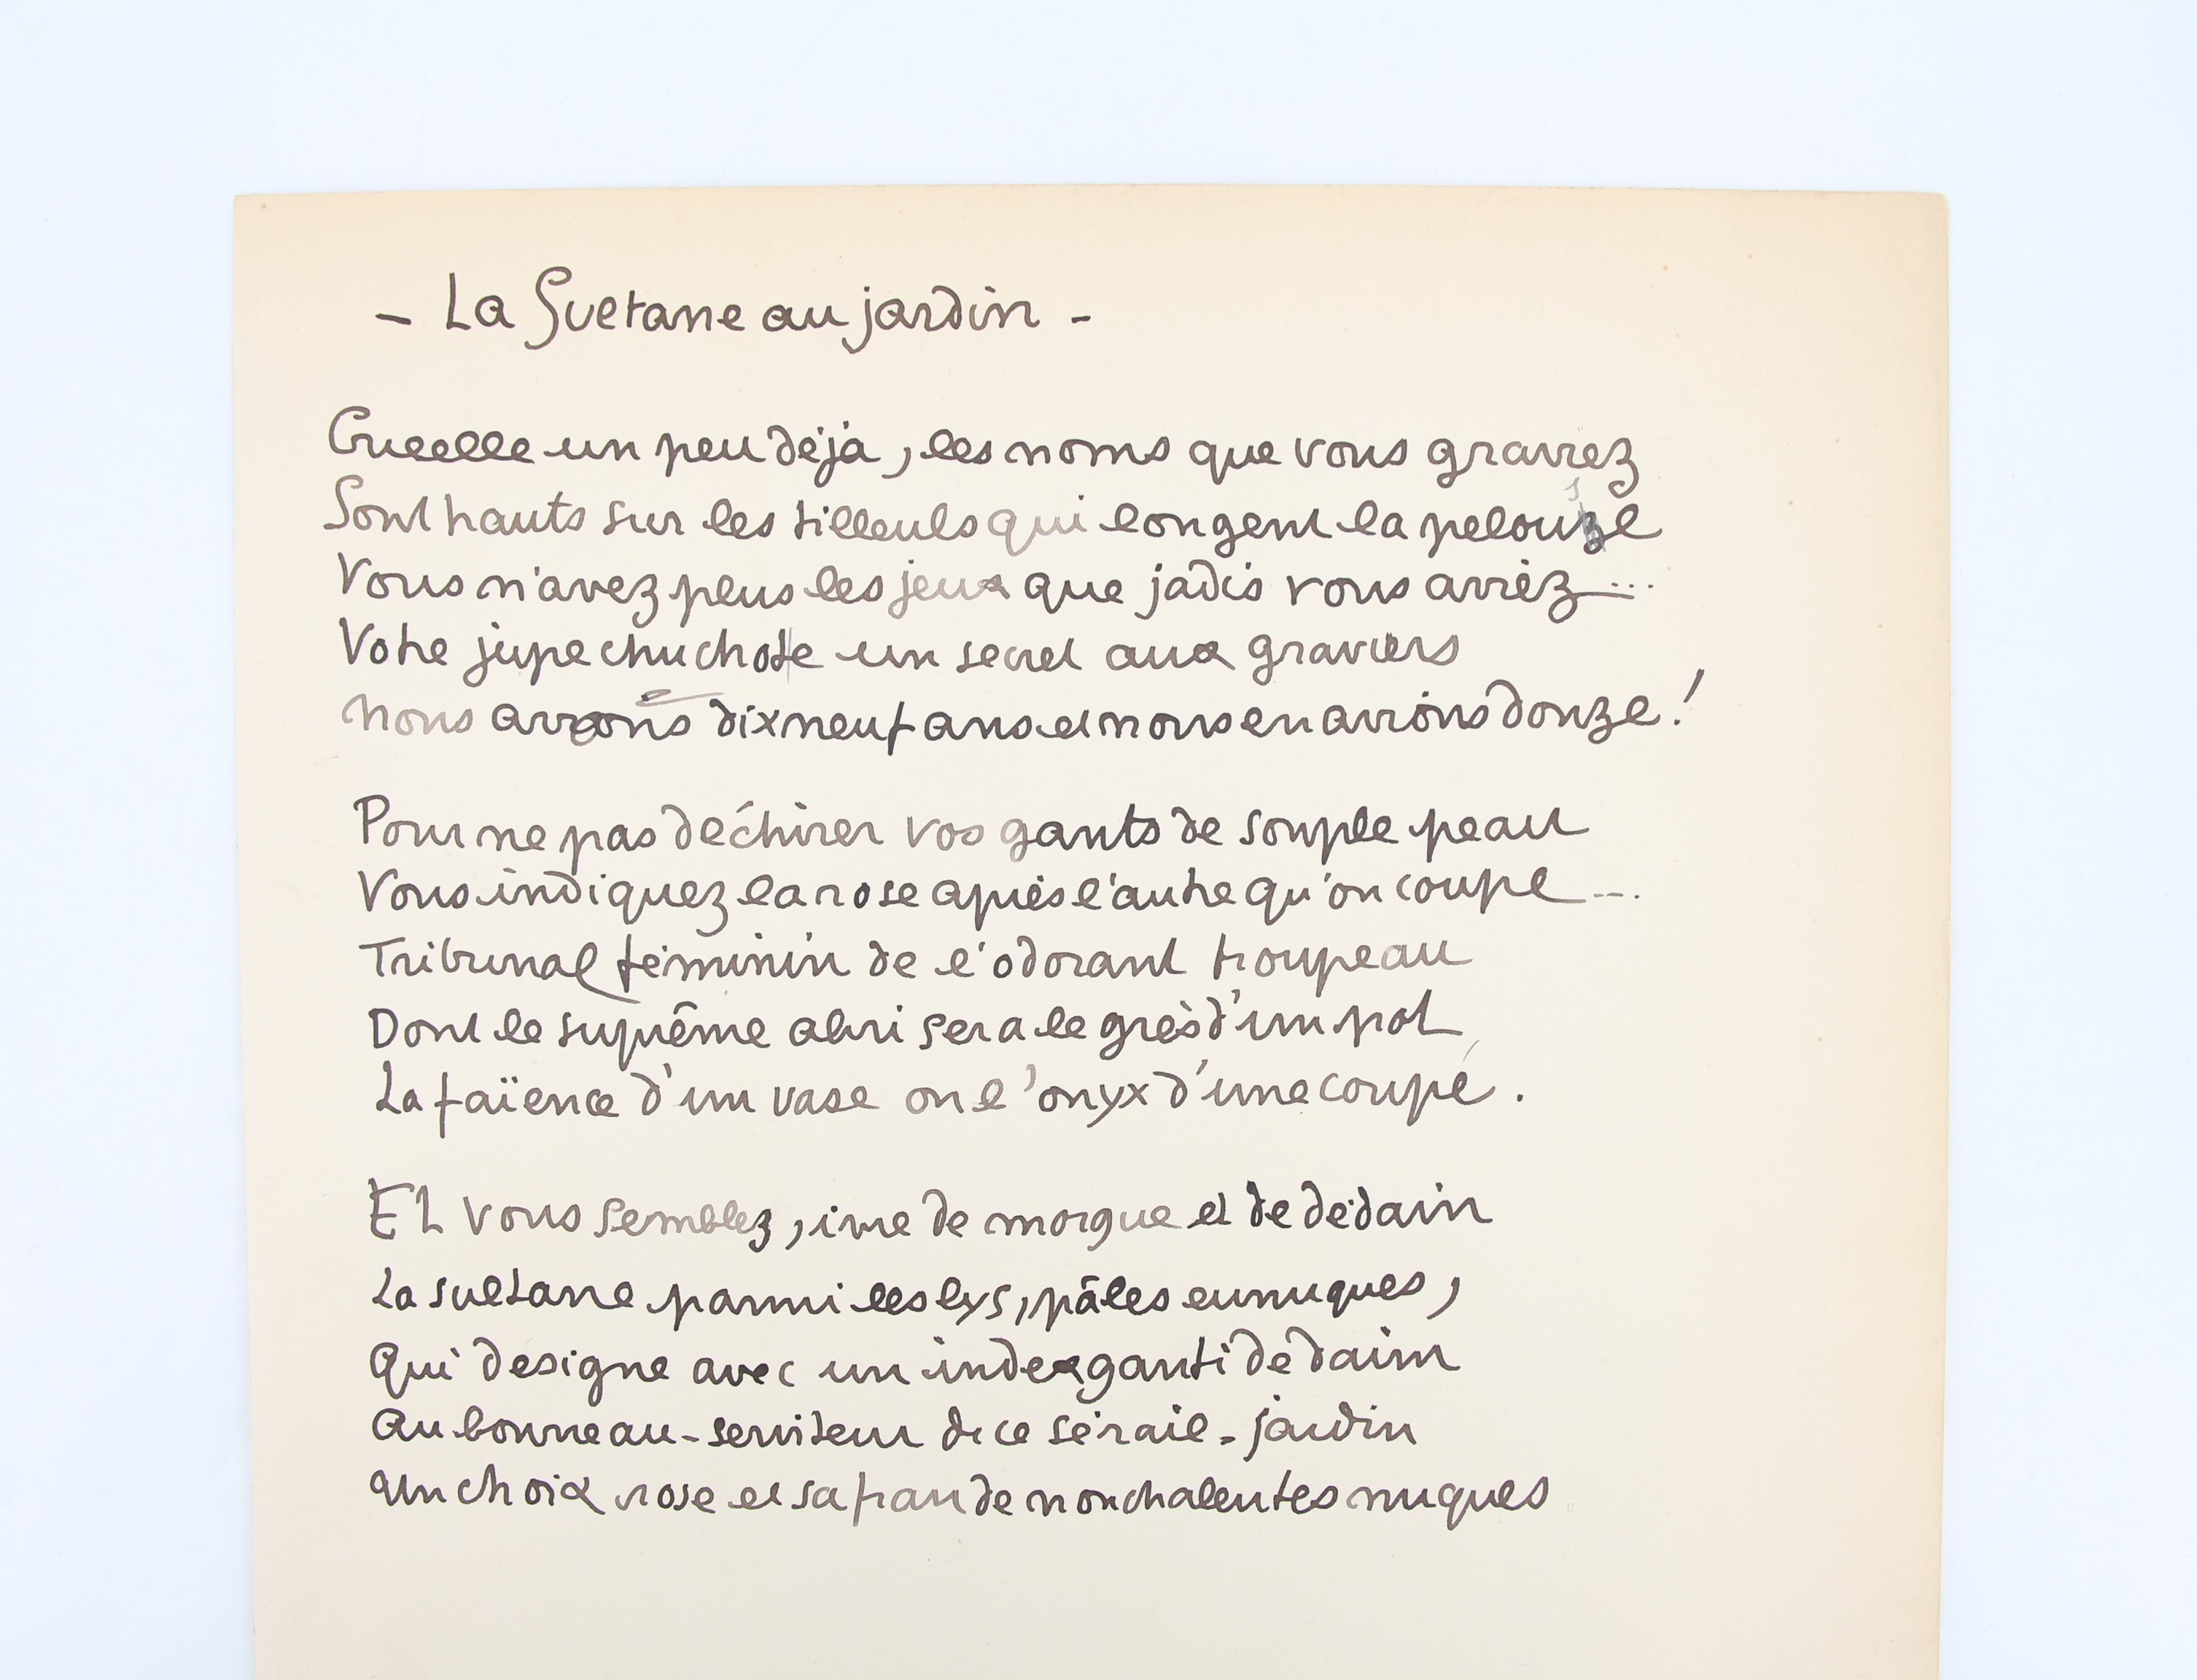 - La Sultane au jardin -
Cruelle un peu déjà, les noms que vous graviez
Sont hauts sur les tilleuls qui longent la pelouse
Vous n'avez plus les jeux que jadis vous aviez...
Votre jupe chuchote un secret aux graviers
Nous avons dix neuf ans et nous en avions douze !
Pour ne pas déchirer vos gants de souple peau
Vous indiquez la rose après l'autre qu'on coupe ...
Tribunal féminin de l'odorant troupeau
Dont le suprême abri sera le grès d'un pot,
La faïence d'un vase ou l'onyx d'une coupe.
Et vous semblez, ivre de morgue et de dédain
La sultane parmi les lys, pâles eunuques,
Qui designe avec un index ganti de daim
Au bourreau-serviteur de ce sérail-jardin
Un choix rose et safran de nonchalentes nuques